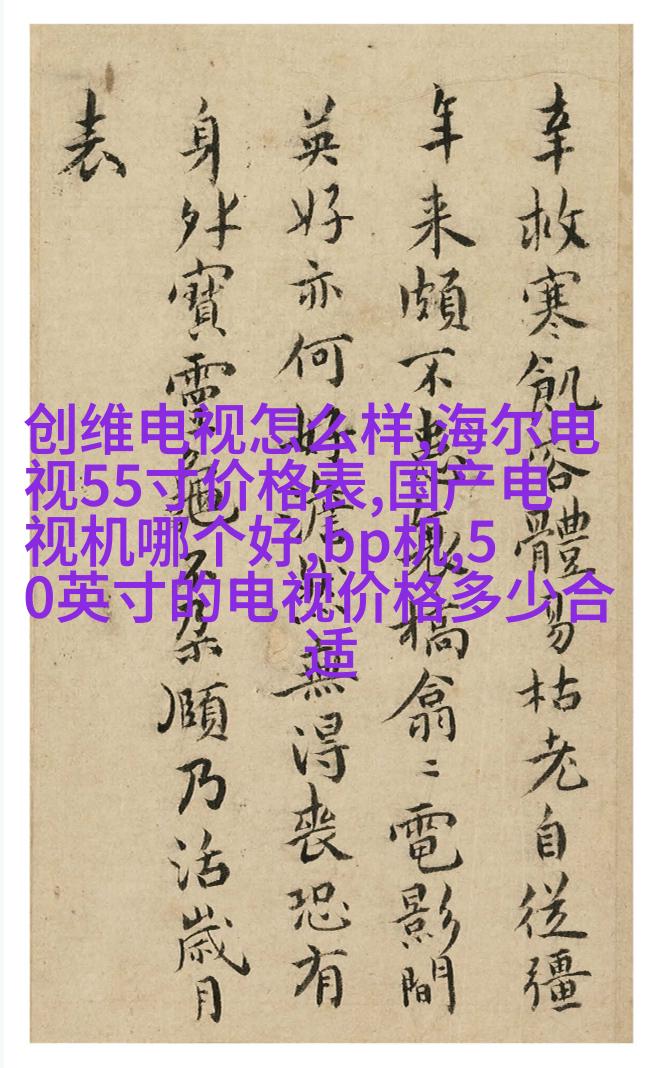 創维电视怎么样,海尔电
视55寸价格表,国产电
视机哪个好,bp机,5
0英寸的电视价格多少合
适
幸救寒飢體易枯老自從彊
年来頗不槁翕二電影間
英好亦何好無得喪恐有
身外寶靈龜不朵頤乃活歲月
表